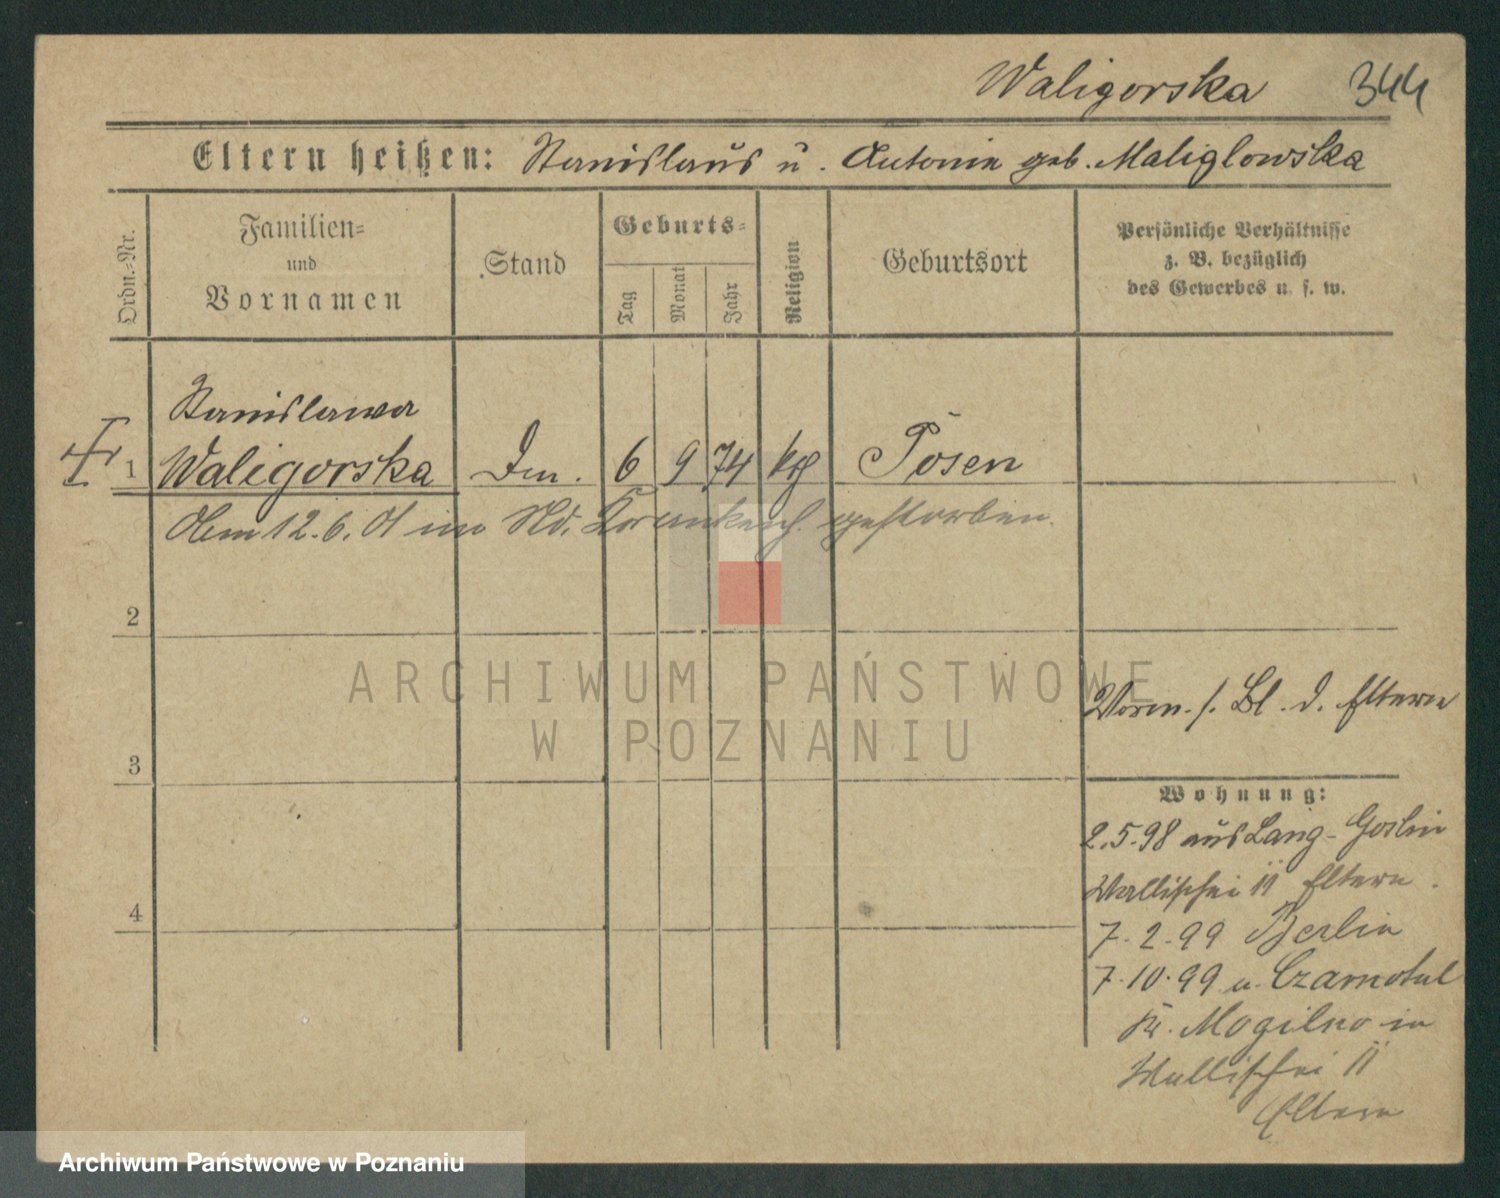 Waligorska 344
Eltern heißen: Stanislaus u. Antonie geb. Maliglowska
Ordn.-Nr.
Familien-
und
Vornamen
Stand
Geburts-
Tag
Monat
Jahr
Religion
Geburtsort
Persönliche Verhältnisse
z. B. bezüglich
des Gewerbes u. s. w.
Stanislawa
1 Waligorska 6 9 74 kg Posen
12.6.01 im gestorben.
2
ARCHIWUM PAŃSTWOWE
W POZNANIU
Bl. d. Eltern
3
Wohnung:
2.5.98 aus Lang-Goslin
Wallischei 11 Eltern.
4
7.2.99 Berlin
7.10.99 Czarnotul
Kr. Mogilno in
Wallischei 11
Eltern
Archiwum Państwowe w Poznaniu